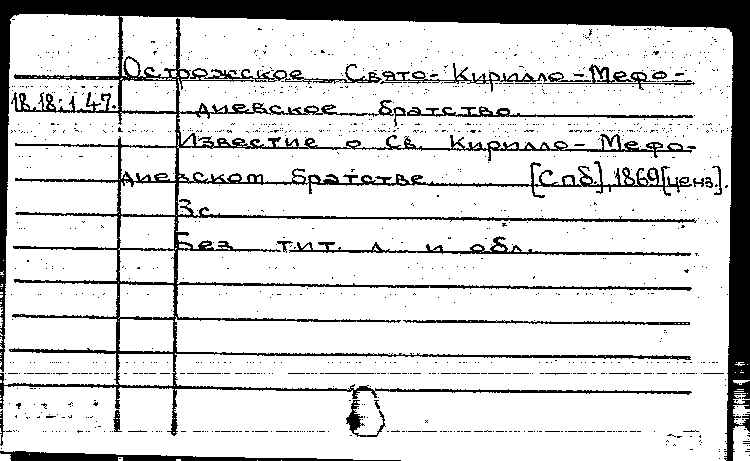 Острожское Свято-Кирилло-Мефо-
18.18.1.47. диевское братство.
Известие о Св. Кирилло-Мефо-
диевском братстве. [Спб.], 1869 [ценз.].
3 с.
Без тит. л. и обл.